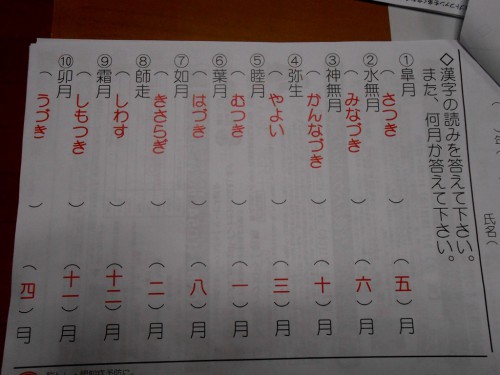 氏名(
◇漢字の読みを答えて下さい。
また、何月か答えて下さい。
①皐月
(さつき) (五)月
②水無月
(みなづき) (六)月
③神無月
(かんなづき) (十)月
④弥生
(やよい) (三)月
⑤睦月
(むつき) (一)月
⑥葉月
(はづき) (八)月
⑦如月
(きさらぎ) (二)月
⑧師走
(しわす) (十二)月
⑨霜月
(しもつき) (十一)月
⑩卯月
(うづき) (四)月